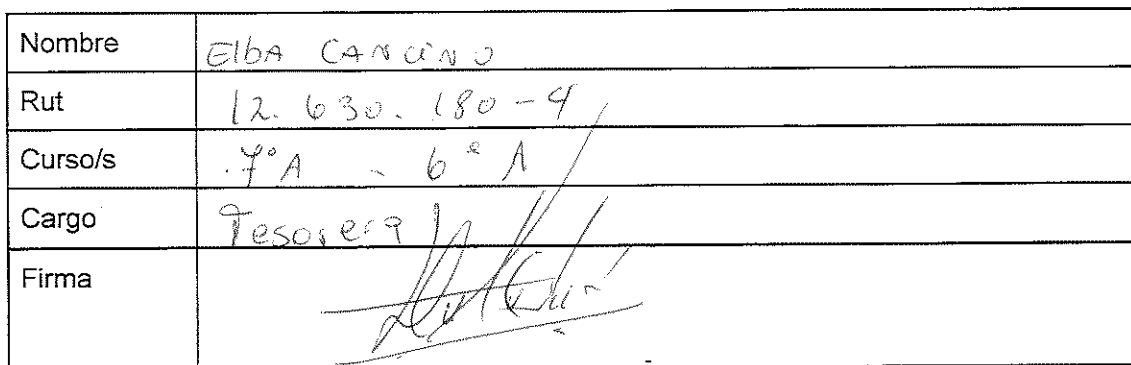 Nombre Elba Cancino
Rut 12.630.180-4
Curso/s 7°A - 6°A
Cargo Tesorera
Firma